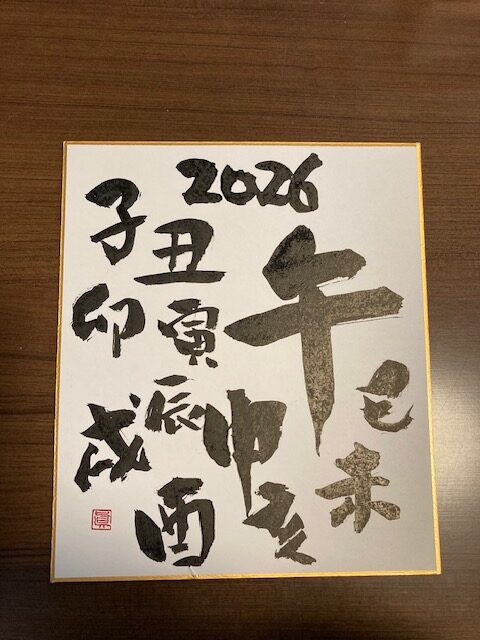 2026
午
巳
未
丑
寅
辰
申
亥
酉
子
卯
戌
眞